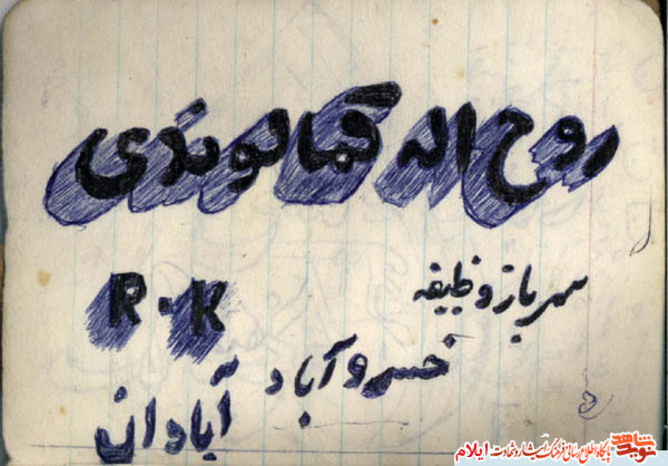 روح اله کمالوندی
سرباز وظیفه
R.K
خسروآباد
آبادان
نوید شاهد پایگاه اطلاع رسانی فرهنگ ایثار و شهادت ایلام